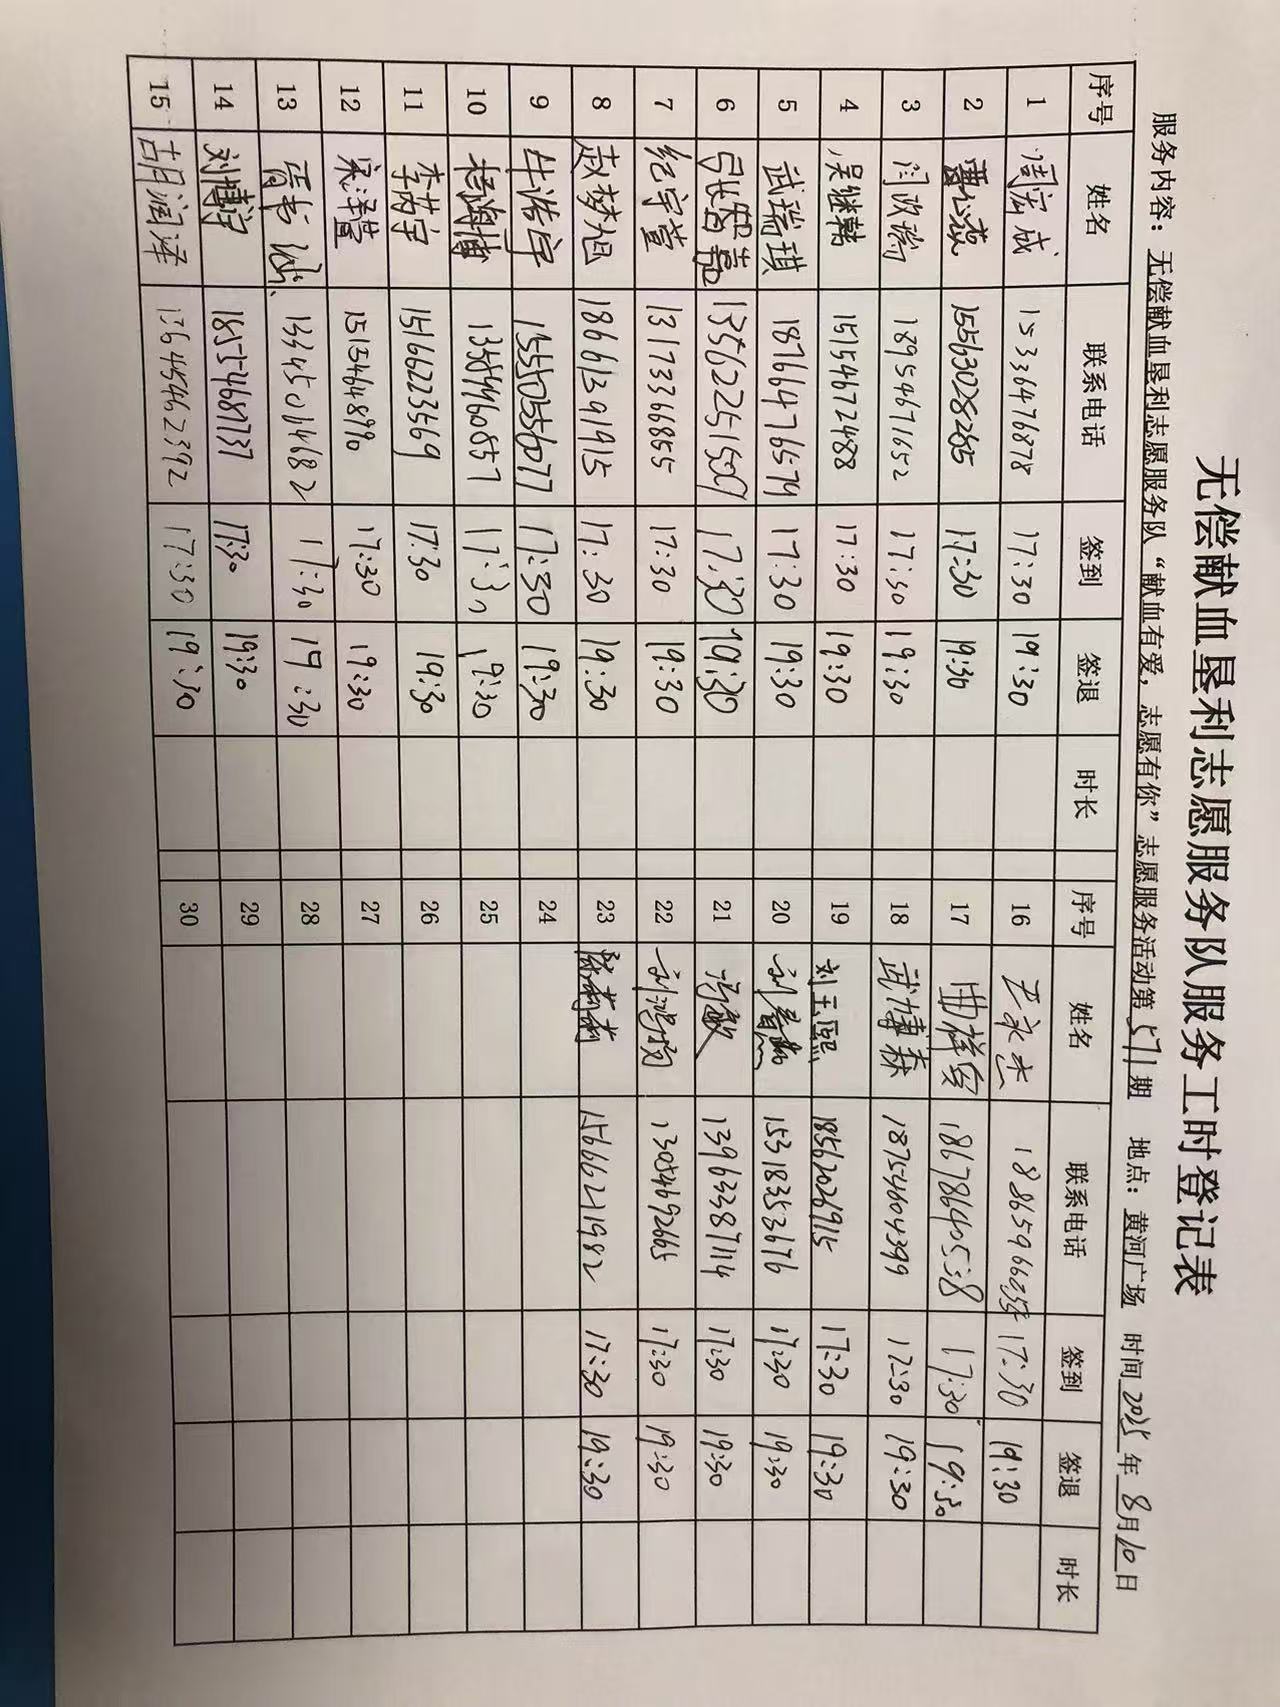 无偿献血垦利志愿服务队服务工时登记表
服务内容：无偿献血垦利志愿服务队“献血有爱，志愿有你”志愿服务活动第571期 地点：黄河广场 时间2025年8月10日
序号 姓名 联系电话 签到 签退 时长 序号 姓名 联系电话 签到 签退 时长
1 周宏成 15336476878 17:30 19:30 16 王永杰 17:30 19:30
2 15563028285 17:30 19:30 17 曲祥贸 18678640538 17:30 19:30
3 闫政瑜 18954671652 17:30 19:30 18 武博森 18754604399 17:30 19:30
4 吴继韩 15154672488 17:30 19:30 19 刘玉熙 18562026915 17:30 19:30
5 武瑞琪 18766476579 17:30 19:30 20 刘 15318353676 17:30 19:30
6 13562251509 17:30 19:30 21 冯敏 13963387114 17:30 19:30
7 纪宇萱 13173366855 17:30 19:30 22 刘鸿扬 13054692665 17:30 19:30
8 赵梦旭 18661391915 17:30 19:30 23 陈莉莉 1566621982 17:30 19:30
9 牛浩宇 15550256077 17:30 19:30 24
10 杨海博 13589960857 17:30 19:30 25
11 李芮宇 15166223569 17:30 19:30 26
12 宋泽萱 15134648990 17:30 19:30 27
13 13345014682 17:30 19:30 28
14 刘博宇 18554687737 17:30 19:30 29
15 胡润泽 13645462392 17:30 19:30 30